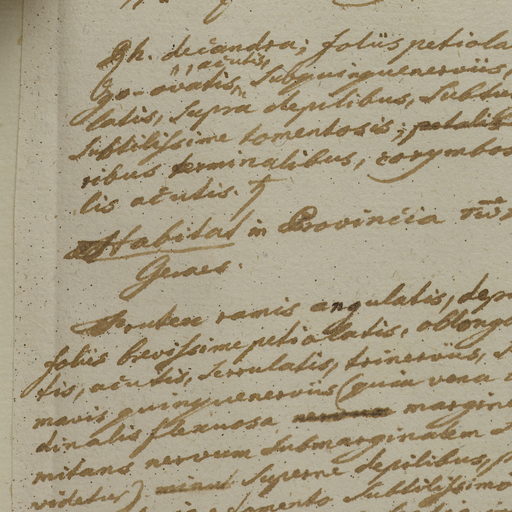 Rh. decandra; foliis petiola
go-ovatis, acutis, subquinquenerviis,
latis, supra depilibus, subtus
subtilissime tomentosis; petalis
ribus terminalibus, corymbos
lis acutis.
Habitat in Provincia
Geraes.
Frutex ramis angulatis, depr
foliis brevissime petiolatis, oblongo
tis, acutis, serrulatis, trinerviis, s
mavis quinquenerviis (quia vena
dinalis flexuosa margin
mitans nervum submarginalem
videtur) superne depilibus,
tomento subtilissimo